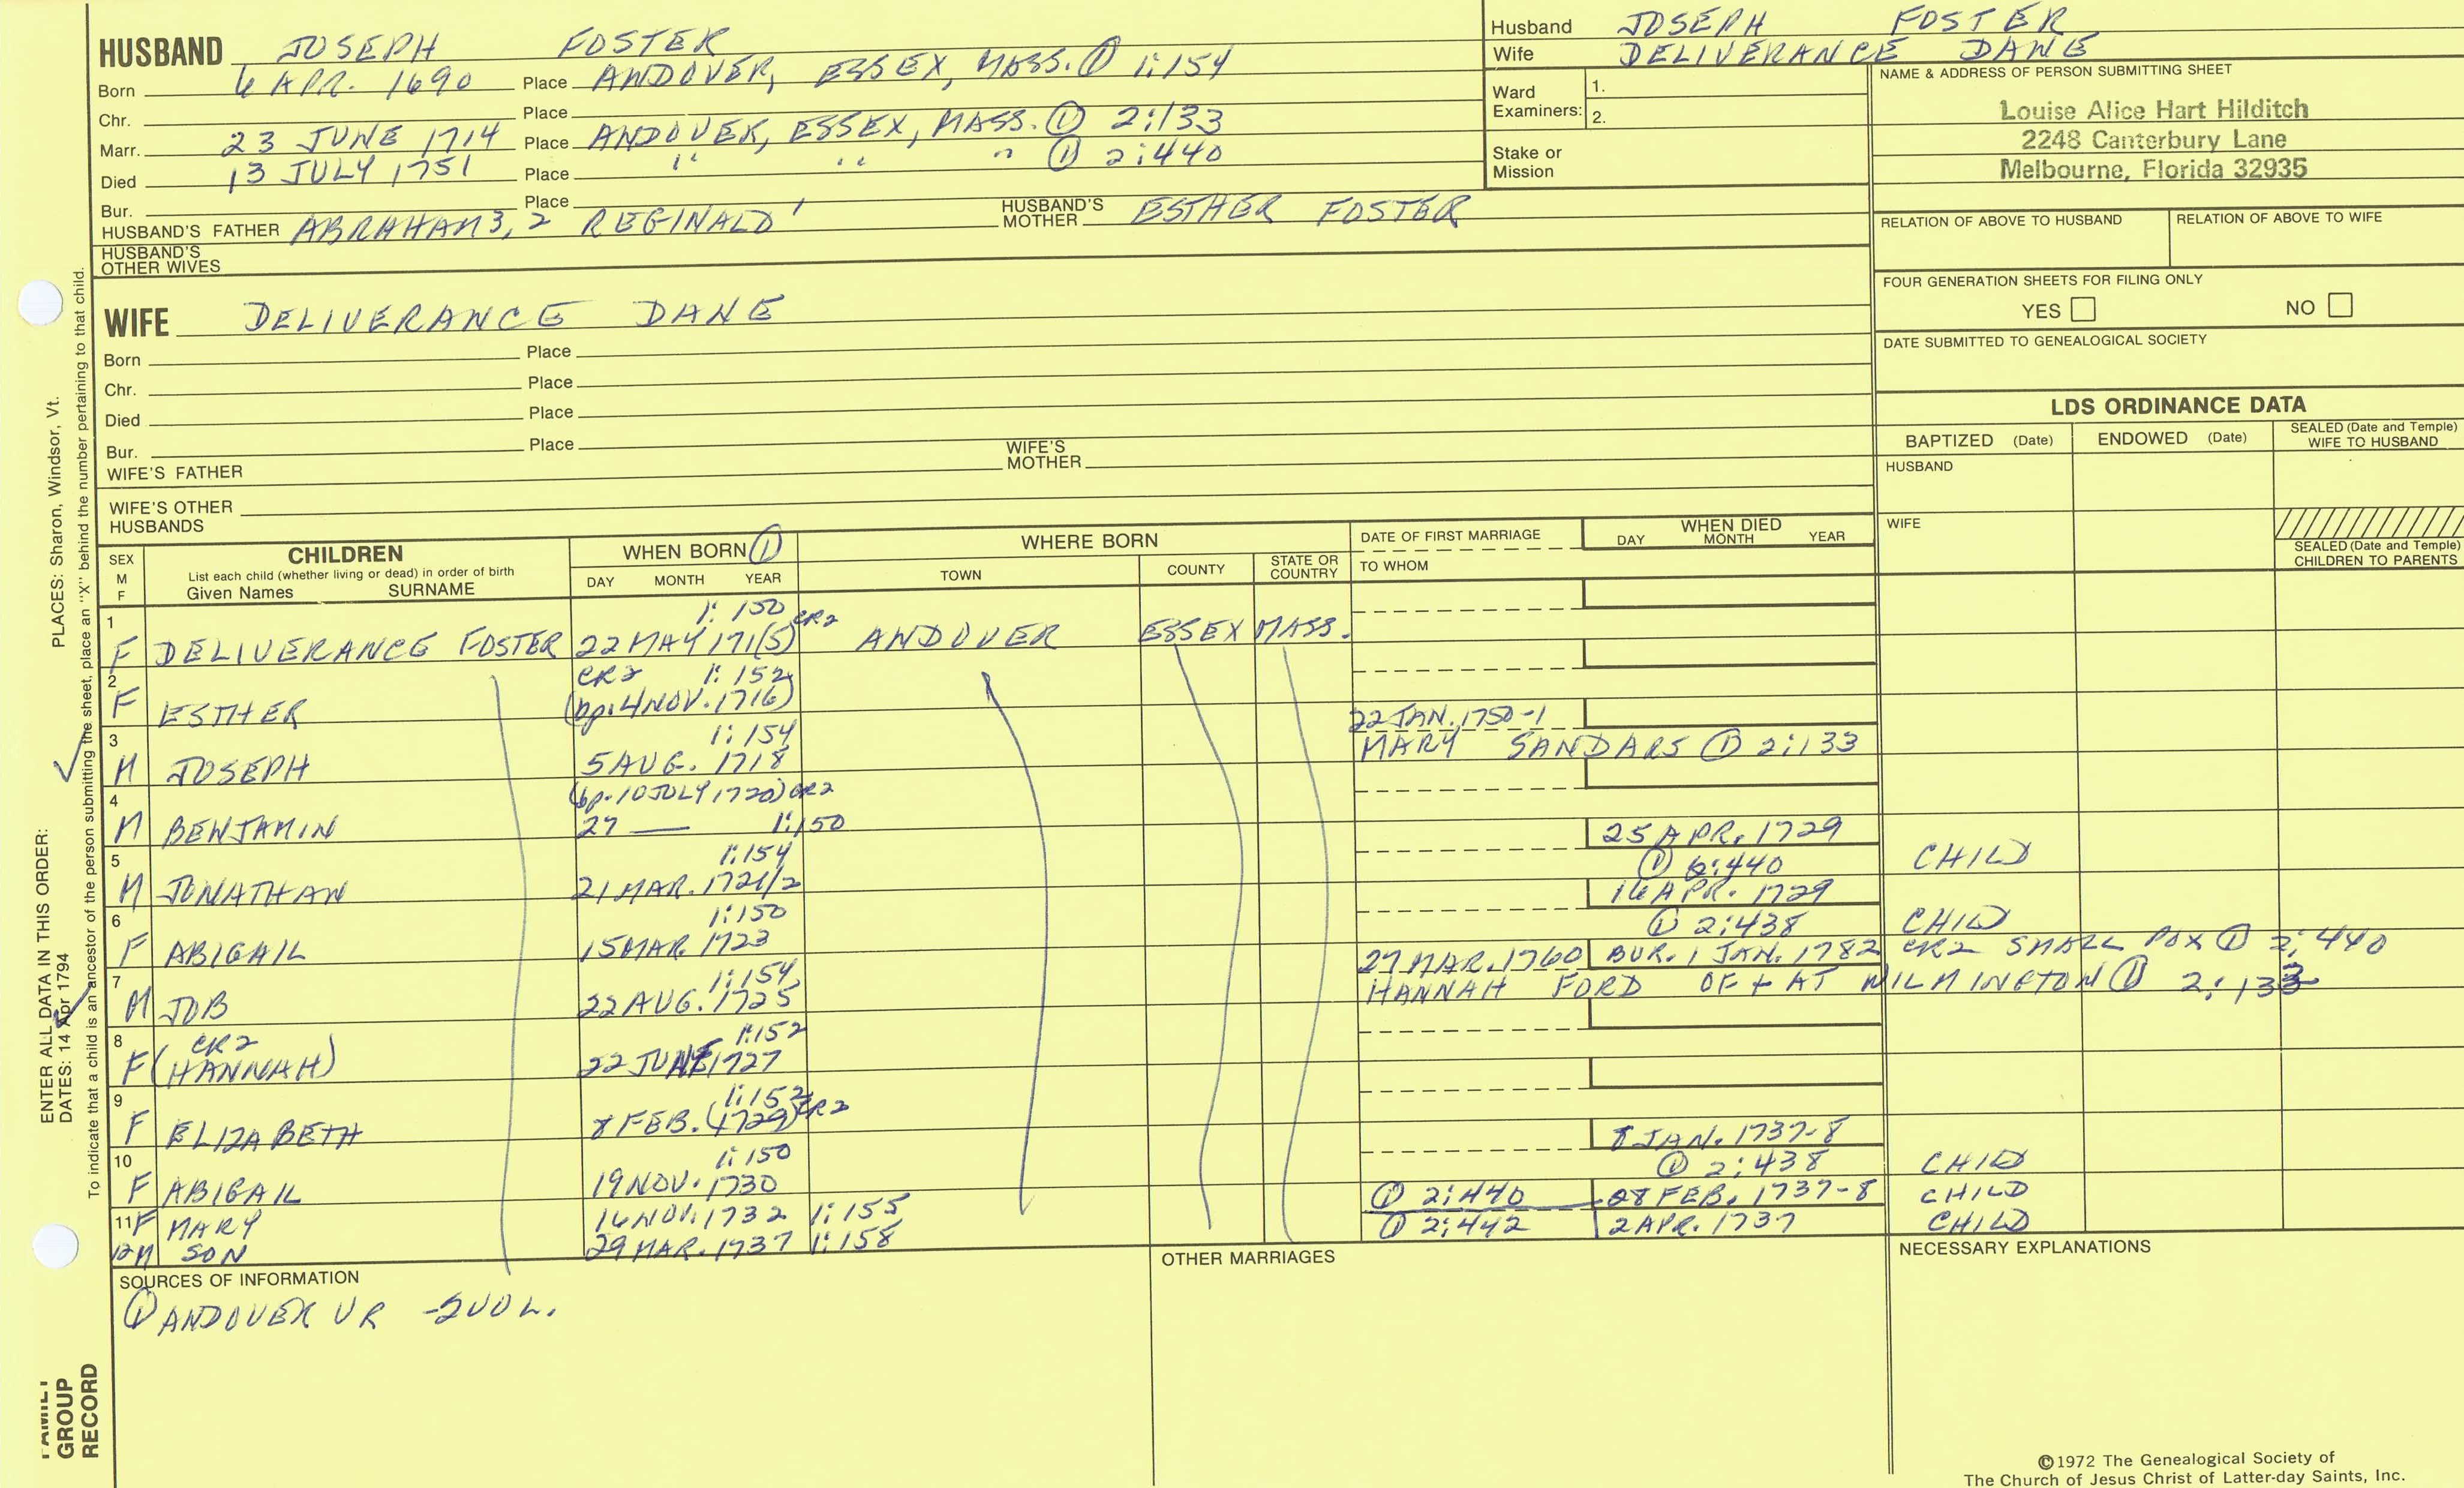 HUSBAND JOSEPH FOSTER
Born 6 APR. 1690 Place ANDOVER, ESSEX, MASS. ① 1:154
Chr. Place
Marr. 23 JUNE 1714 Place ANDOVER, ESSEX, MASS. ① 2:133
Died 13 JULY 1751 Place " " " ① 2:440
Bur. Place
HUSBAND'S FATHER ABRAHAM3, 2 REGINALD' HUSBAND'S MOTHER ESTHER FOSTER
HUSBAND'S OTHER WIVES
Husband JOSEPH FOSTER
Wife DELIVERANCE DANE
Ward Examiners: 1.
2.
Stake or Mission
NAME & ADDRESS OF PERSON SUBMITTING SHEET
Louise Alice Hart Hilditch
2248 Canterbury Lane
Melbourne, Florida 32935
RELATION OF ABOVE TO HUSBAND RELATION OF ABOVE TO WIFE
FOUR GENERATION SHEETS FOR FILING ONLY
YES NO
DATE SUBMITTED TO GENEALOGICAL SOCIETY
WIFE DELIVERANCE DANE
Born Place
Chr. Place
Died Place
Bur. Place
WIFE'S FATHER WIFE'S MOTHER
WIFE'S OTHER HUSBANDS
LDS ORDINANCE DATA
BAPTIZED (Date) ENDOWED (Date) SEALED (Date and Temple) WIFE TO HUSBAND
HUSBAND
WIFE
SEALED (Date and Temple) CHILDREN TO PARENTS
SEX M F
CHILDREN
List each child (whether living or dead) in order of birth
Given Names SURNAME
WHEN BORN ①
DAY MONTH YEAR
WHERE BORN
TOWN COUNTY STATE OR COUNTRY
DATE OF FIRST MARRIAGE
TO WHOM
WHEN DIED
DAY MONTH YEAR
1 1:150 CR2
F DELIVERANCE FOSTER 22 MAY 171(5) ANDOVER ESSEX MASS.
2 CR2 1:152
F ESTHER (bp. 4 NOV. 1716)
3 1:154 22 JAN. 1750-1
M JOSEPH 5 AUG. 1718 MARY SANDARS ① 2:133
4 (bp. 10 JULY 1720) CR2
M BENJAMIN 27 — 1:150
5 1:154 25 APR. 1729
M JONATHAN 21 MAR. 1721/2 ① 2:440 CHILD
6 1:150 16 APR. 1729
F ABIGAIL 15 MAR. 1723 ① 2:438 CHILD
7 1:154 27 MAR. 1760 BUR. 1 JAN. 1782 CR2 SMALL POX ① 2:440
M JOB 22 AUG. 1725 HANNAH FORD OF + AT WILMINGTON ① 2:133
8 CR2 1:152
F (HANNAH) 22 JUNE 1727
9 1:152 CR2
F ELIZABETH 8 FEB. (1729)
10 1:150 8 JAN. 1737-8
F ABIGAIL 19 NOV. 1730 ① 2:438 CHILD
11 F MARY 16 NOV. 1732 1:155 ① 2:440 28 FEB. 1737-8 CHILD
12 M SON 29 MAR. 1737 1:158 ① 2:442 2 APR. 1737 CHILD
SOURCES OF INFORMATION
① ANDOVER VR -2 VOL.
OTHER MARRIAGES
NECESSARY EXPLANATIONS
©1972 The Genealogical Society of
The Church of Jesus Christ of Latter-day Saints, Inc.
ENTER ALL DATA IN THIS ORDER: PLACES: Sharon, Windsor, Vt.
DATES: 14 Apr 1794
To indicate that a child is an ancestor of the person submitting the sheet, place an "X" behind the number pertaining to that child.
FAMILY
GROUP
RECORD